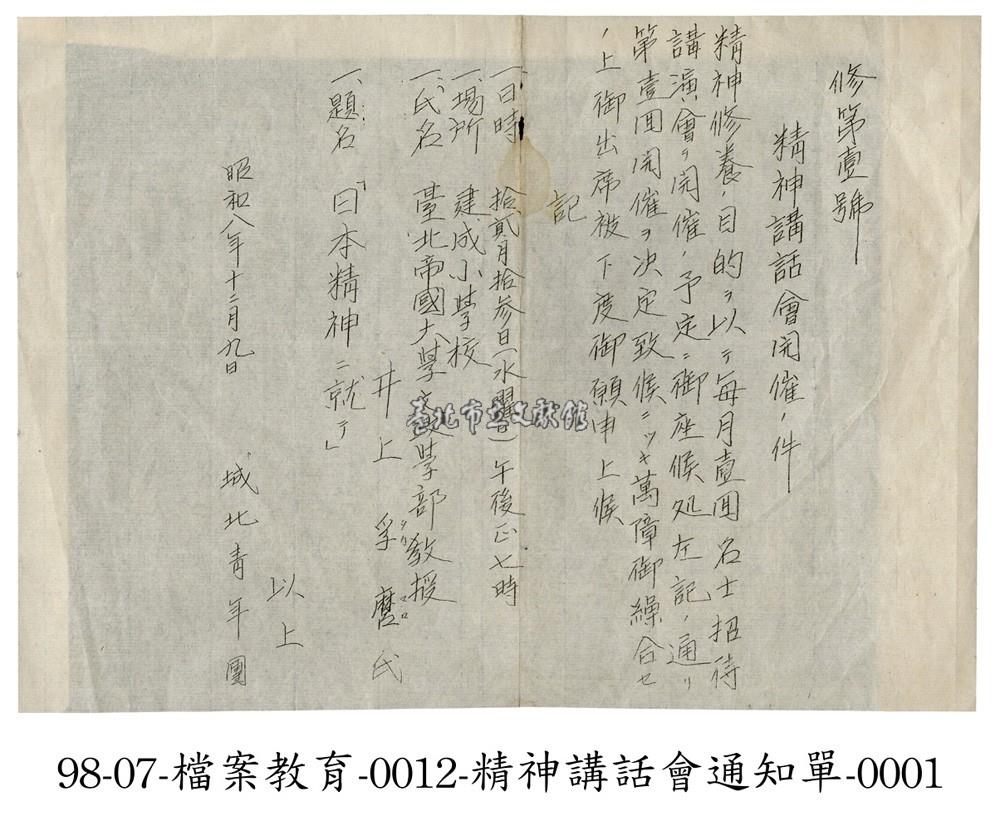 修第壹號
精神講話會開催ノ件
精神修養ノ目的ヲ以テ每月壹回名士招待
講演會ヲ開催ノ予定ニ御座候処左記ノ通リ
第壹回開催ヲ決定致候ニツキ萬障御繰合セ
ノ上御出席被下度御願申上候
記
一、日時 拾貳月拾參日(水曜)午後正七時
一、場所 建成小學校
一、氏名 臺北帝國大學文政學部教授
井上孚麿氏
タカマロ
一、題名「日本精神ニ就テ」
以上
昭和八年十二月九日
城北青年團
臺北市立文獻館
98-07-檔案教育-0012-精神講話會通知單-0001